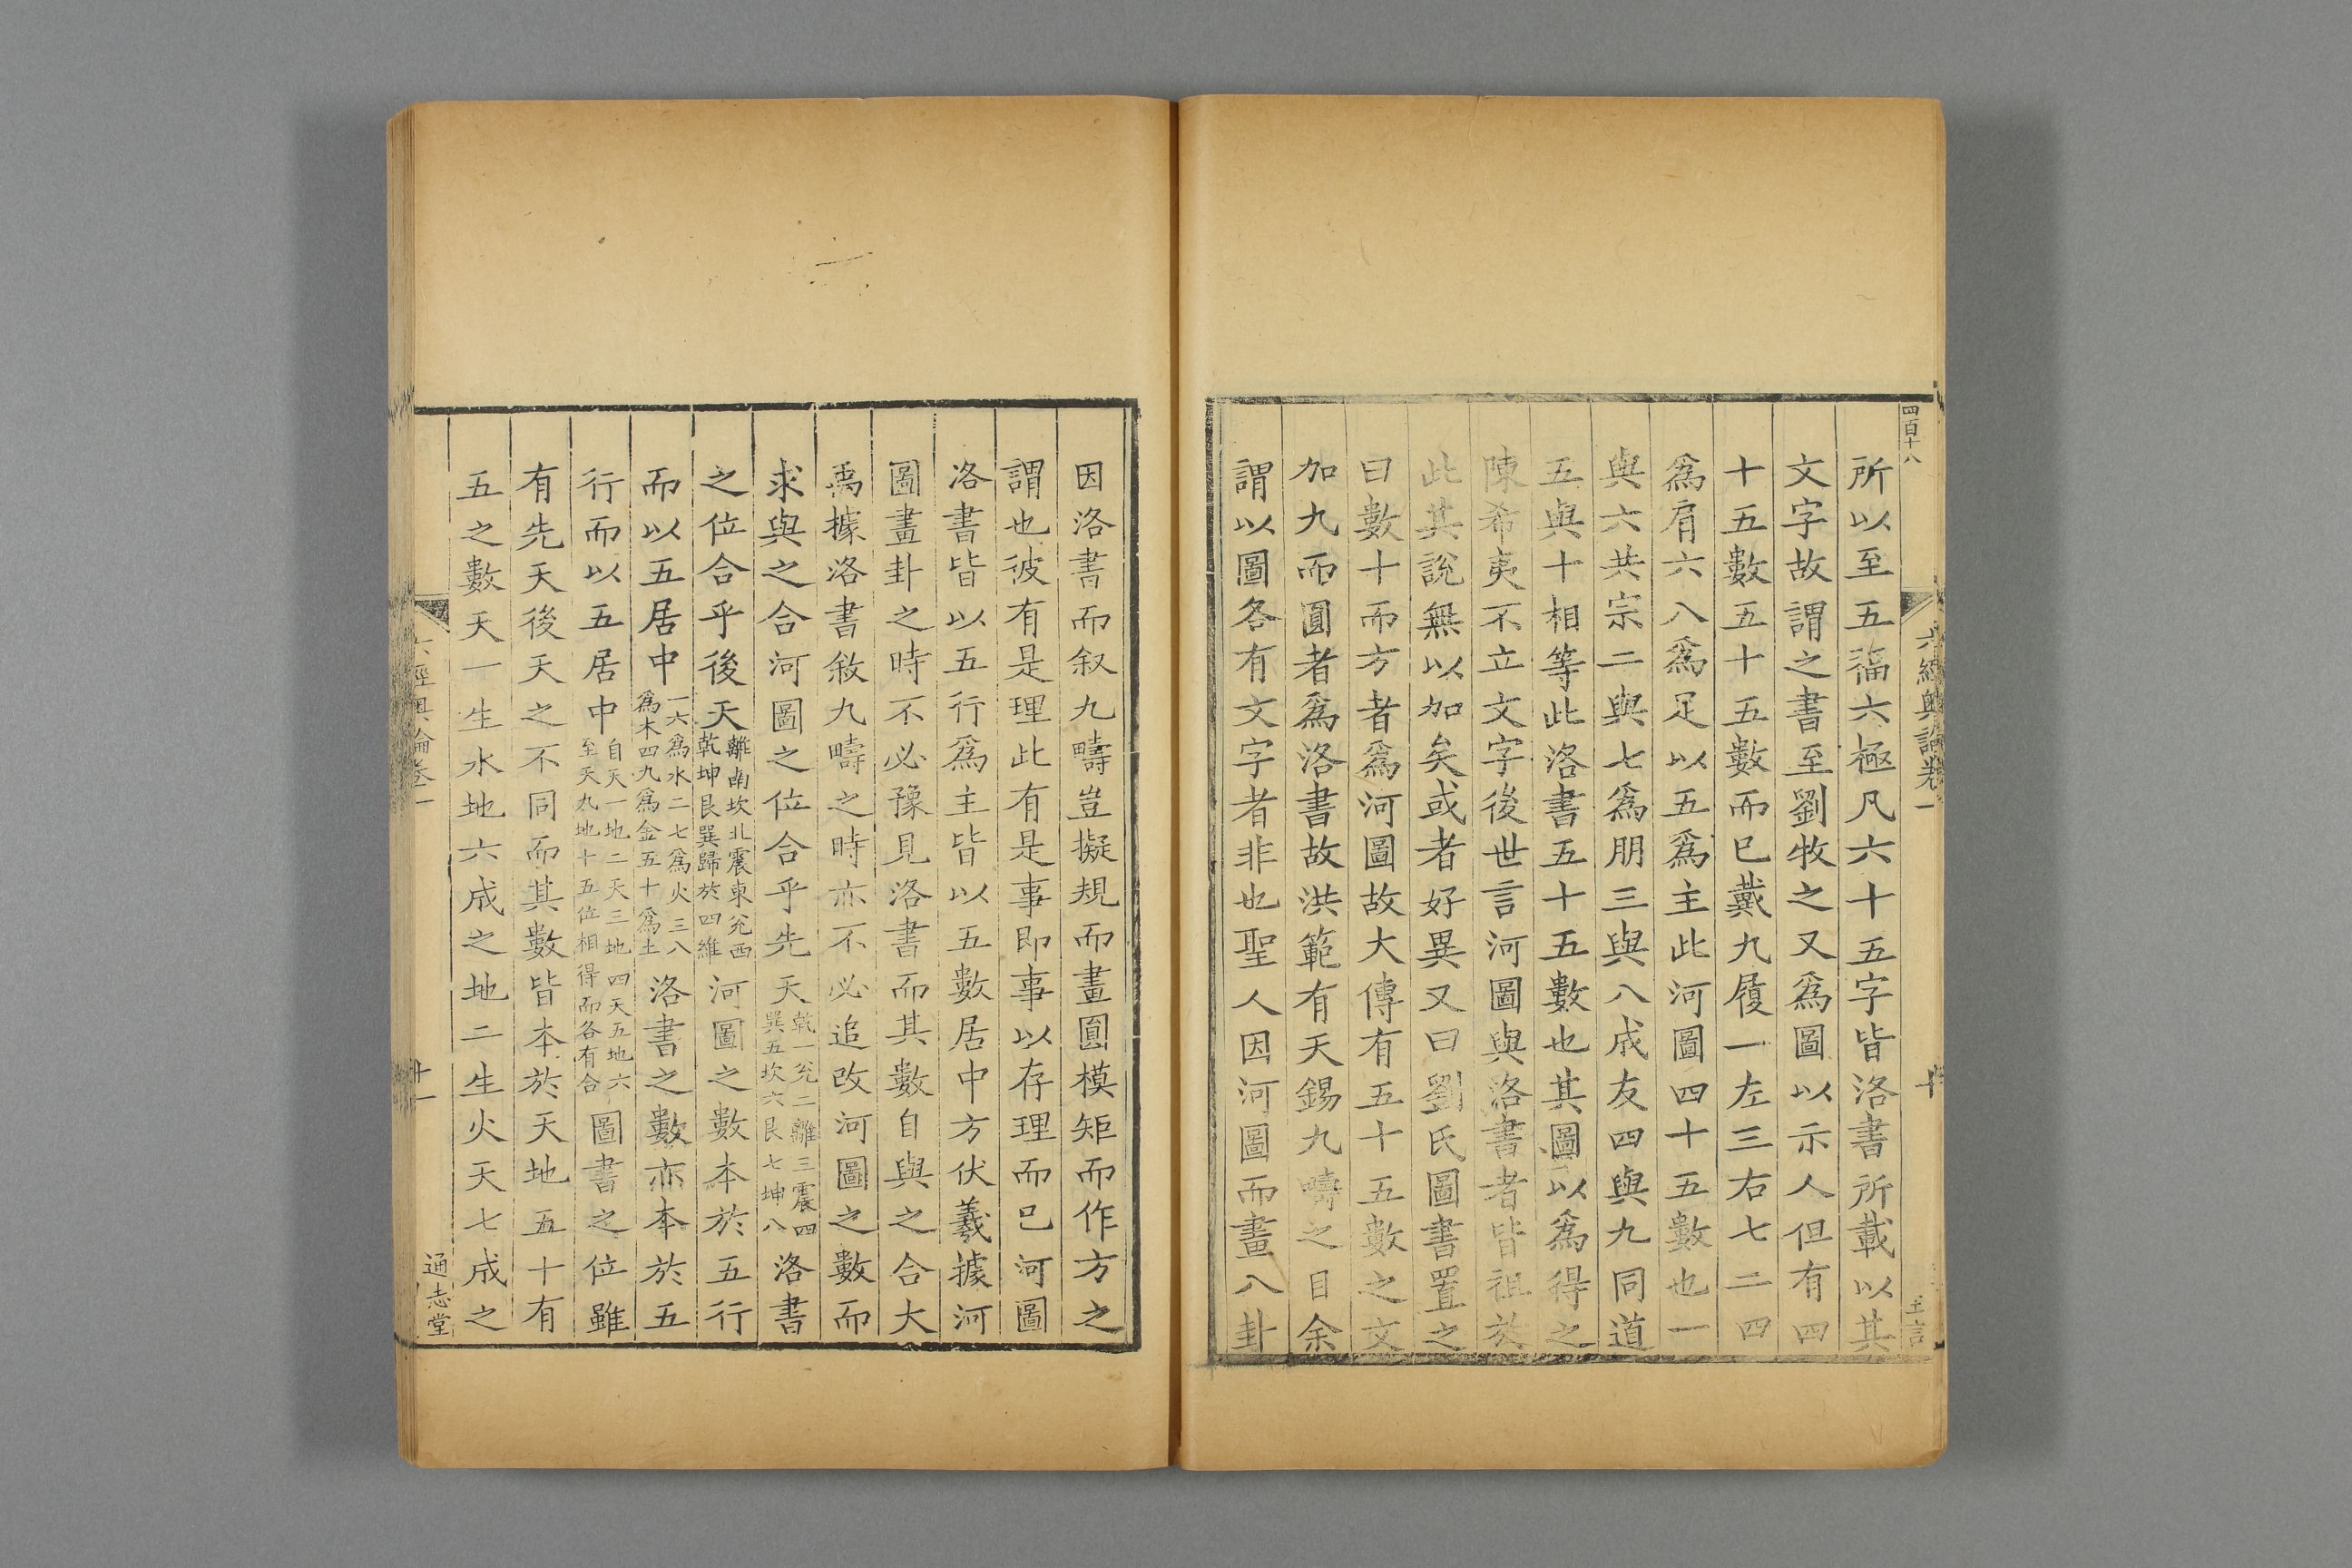 四百十八
六經奧論卷一
十
所以至五福六極凡六十五字皆洛書所載以其
文字故謂之書至劉牧之又爲圖以示人但有四
十五數五十五數而已戴九履一左三右七二四
爲肩六八爲足以五爲主此河圖四十五數也一
與六共宗二與七爲朋三與八成友四與九同道
五與十相等此洛書五十五數也其圖以爲得之
陳希夷不立文字後世言河圖與洛書者皆祖於
此其說無以加矣或者好異又曰劉氏圖書置之
曰數十而方者爲河圖故大傳有五十五數之文
加九而圓者爲洛書故洪範有天錫九疇之目余
謂以圖各有文字者非也聖人因河圖而畫八卦
因洛書而叙九疇豈擬規而畫圓模矩而作方之
謂也彼有是理此有是事即事以存理而已河圖
洛書皆以五行爲主皆以五數居中方伏羲據河
圖畫卦之時不必豫見洛書而其數自與之合大
禹據洛書敘九疇之時亦不必追改河圖之數而
求與之合河圖之位合乎先天乾一兊二離三震四巽五坎六艮七坤八洛書
之位合乎後天離南坎北震東兊西乾坤艮巽歸於四維河圖之數本於五行
而以五居中一六爲水二七爲火三八爲木四九爲金五十爲土洛書之數亦本於五
行而以五居中自天一地二天三地四天五地六至天九地十五位相得而各有合圖書之位雖
有先天後天之不同而其數皆本於天地五十有
五之數天一生水地六成之地二生火天七成之
六經奧論卷一
十一
通志堂